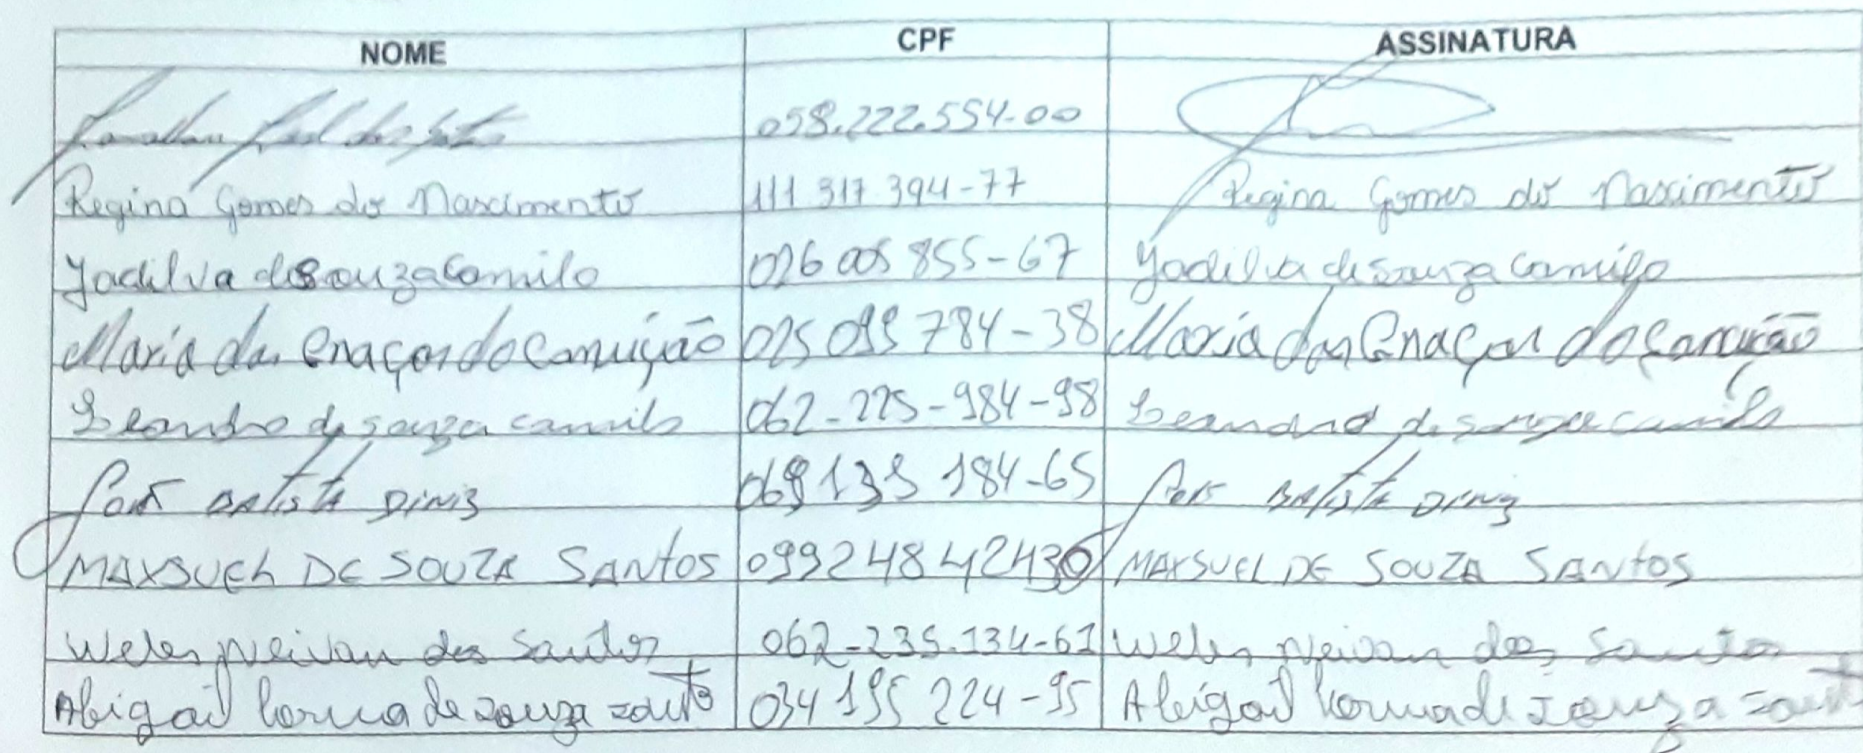 NOME CPF ASSINATURA
058.222.554-00
Regina Gomes do Nascimento 111 317 394-77 Regina Gomes do Nascimento
Jadilva de Souza Camilo 026 005 855-67 Jadilva de Souza Camilo
Maria das Graças da Conceição 025 099 784-38 Maria das Graças da Conceição
Leandro de souza camilo 062-225-984-98 Leandro de souza camilo
BATISTA DINIZ 069 139 184-65 BATISTA DINIZ
MAXSUEL DE SOUZA SANTOS 09924842430 MAXSUEL DE SOUZA SANTOS
dos Santos 062-235.134-61 dos Santos
Abigail de souza 034 195 224-95 Abigail de souza